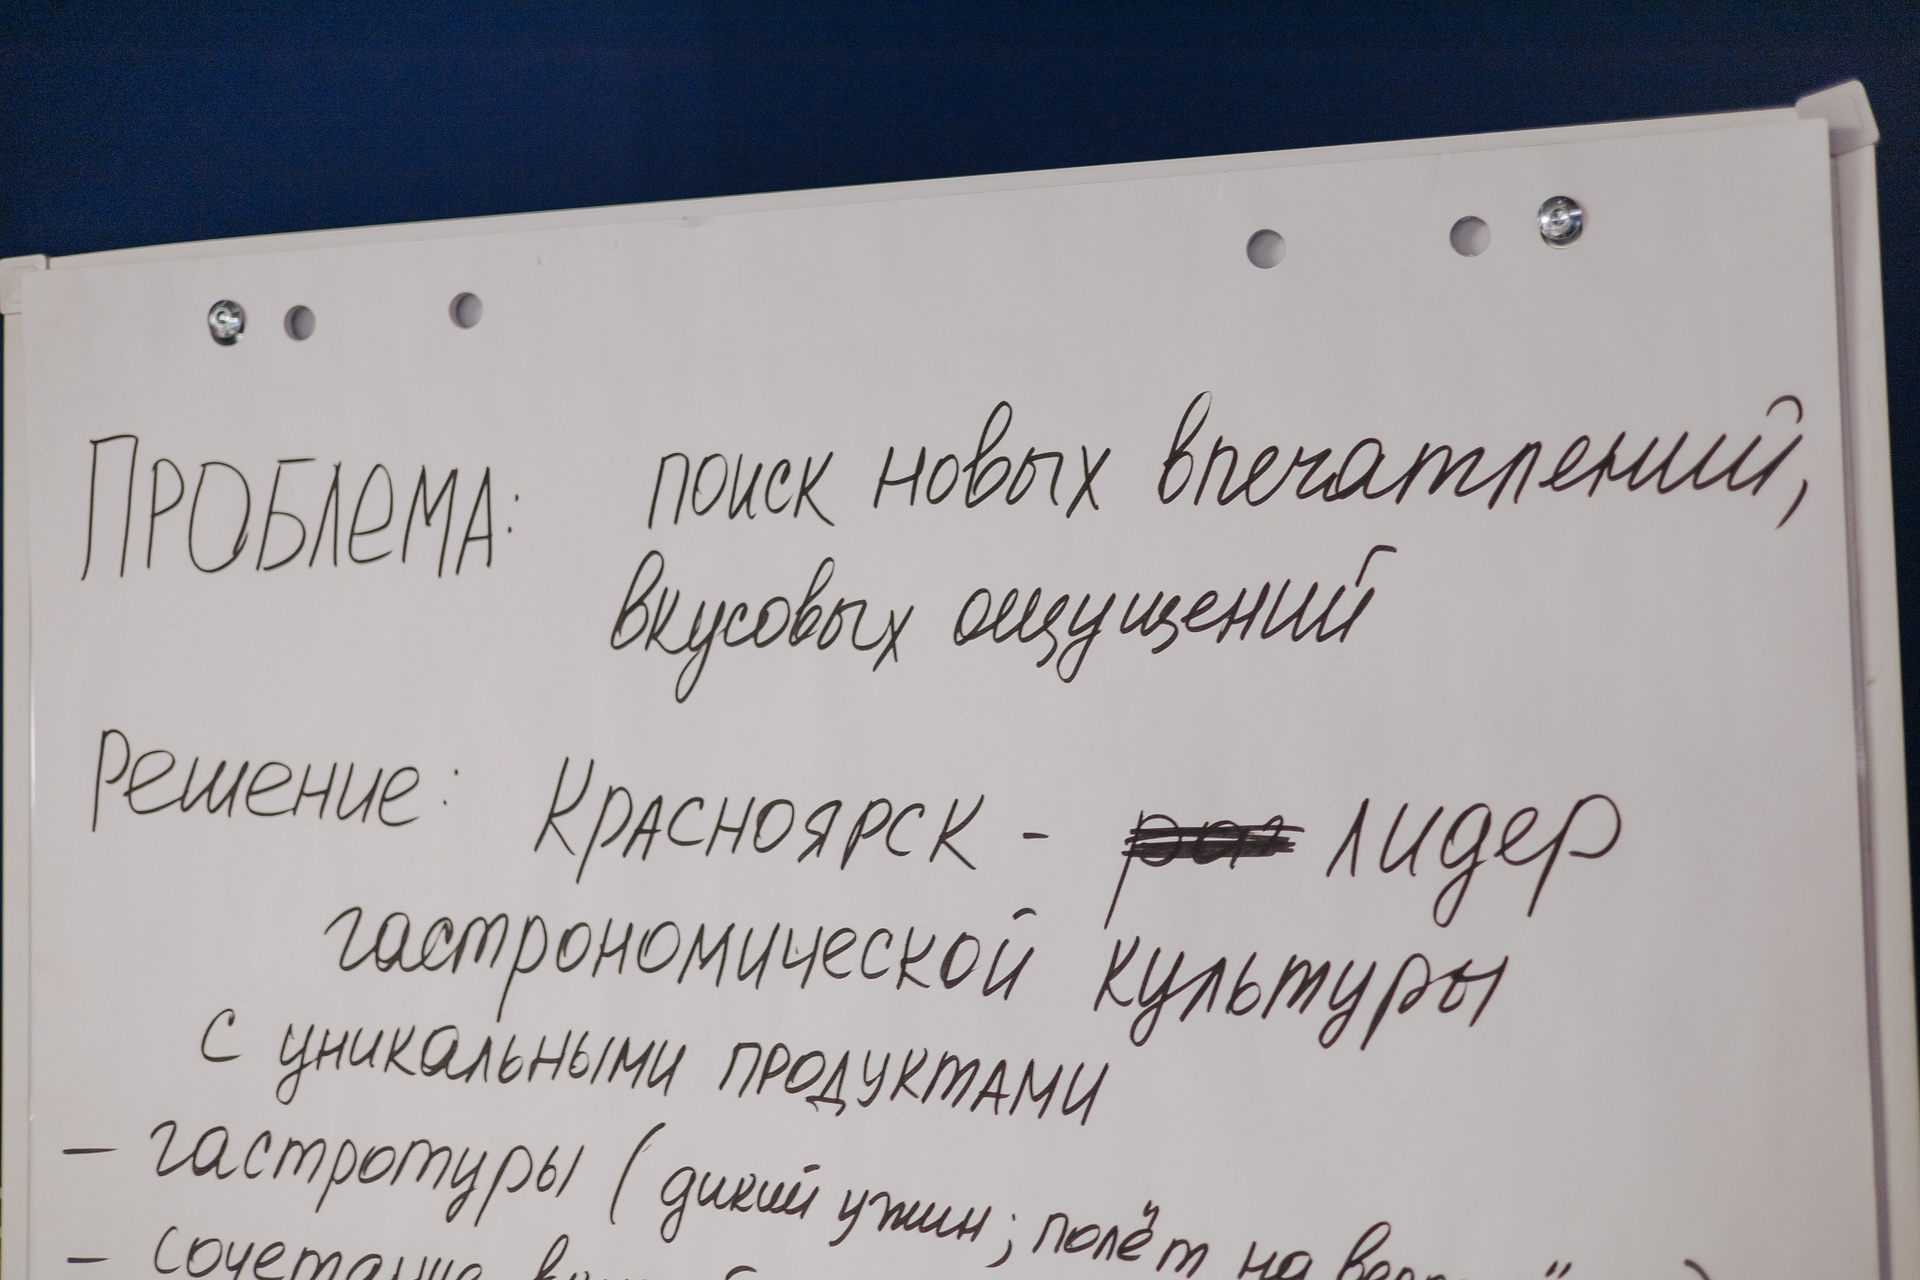 ПРОБЛЕМА: поиск новых впечатлений,
вкусовых ощущений
Решение: Красноярск - лидер
гастрономической культуры
с уникальными продуктами
– гастротуры (дикий ужин; полёт на
– сочетание